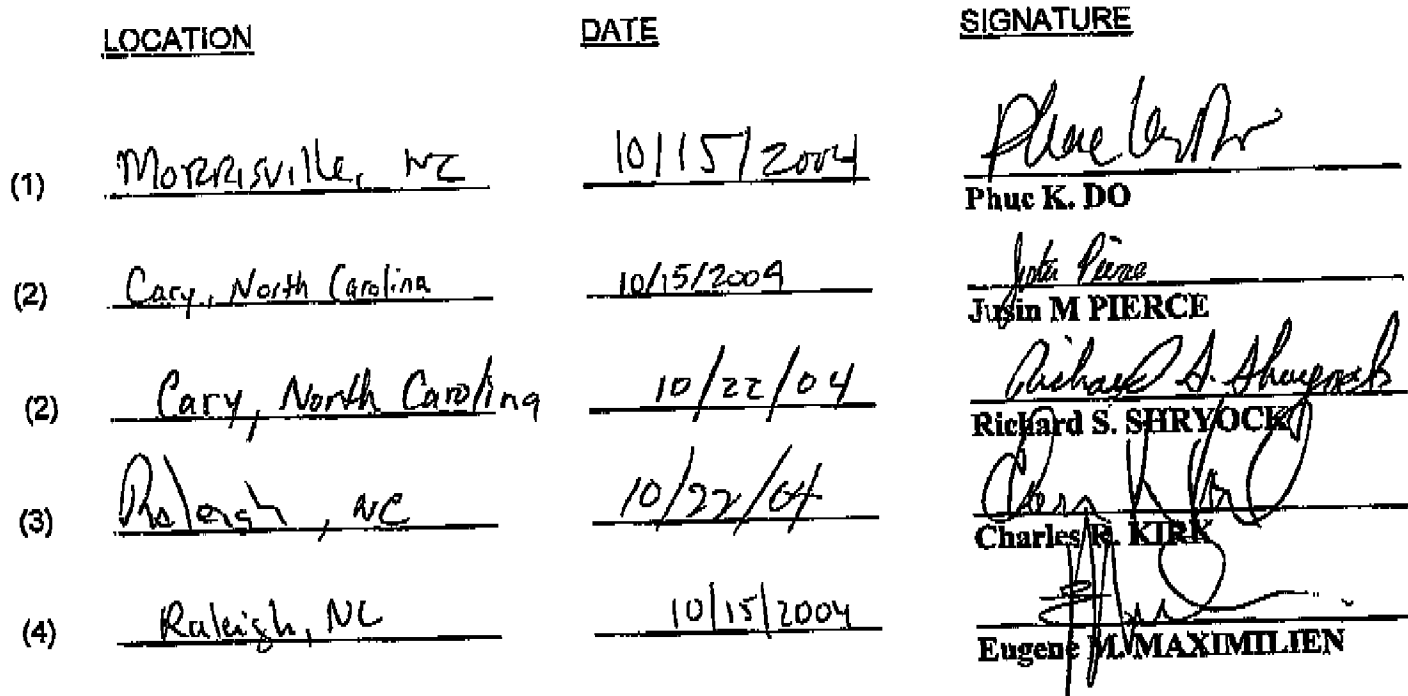 LOCATION DATE SIGNATURE
(1) Morrisville, NC 10/15/2004
Phuc K. DO
(2) Cary, North Carolina 10/15/2004 Justin Pierce
Jusin M PIERCE
(2) Cary, North Carolina 10/22/04 Richard S. Shryock
Richard S. SHRYOCK
(3) Raleigh, NC 10/22/04
Charles R. KIRK
(4) Raleigh, NC 10/15/2004
Eugene M. MAXIMILIEN